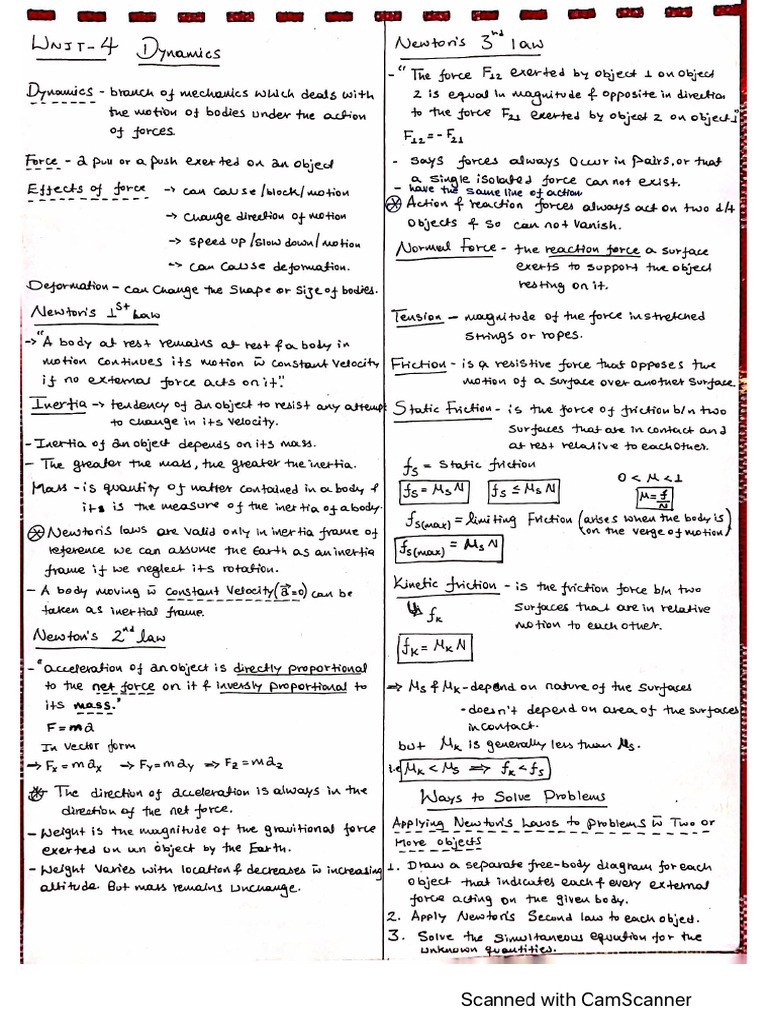 UNIT-4 Dynamics
Dynamics - branch of mechanics which deals with
the motion of bodies under the action
of forces.
Force - a pull or a push exerted on an object
Effects of force → can cause/block/motion
→ change direction of motion
→ speed up/slow down/motion
→ can cause deformation.
Deformation - can change the shape or size of bodies.
Newton's 1st Law
→ "A body at rest remains at rest & a body in
motion continues its motion w̄ constant velocity
if no external force acts on it".
Inertia → tendency of an object to resist any attempt
to change in its velocity.
- Inertia of an object depends on its mass.
- The greater the mass, the greater the inertia.
Mass - is quantity of matter contained in a body &
it is the measure of the inertia of a body.
⊛ Newton's laws are valid only in inertia frame of
reference we can assume the Earth as an inertia
frame if we neglect its rotation.
- A body moving w̄ constant velocity (a⃗=0) can be
taken as inertial frame.
Newton's 2nd law
- "acceleration of an object is directly proportional
to the net force on it & inversly proportional to
its mass."
F = ma
In vector form
→ Fx = max → Fy = may ⇒ Fz = maz
* The direction of acceleration is always in the
direction of the net force.
- Weight is the magnitude of the gravitional force
exerted on un object by the Earth.
- Weight varies with location & decreases w̄ increasing
altitude. But mass remains unchange.
Newton's 3rd law
- "The force F12 exerted by object 1 on object
2 is equal in magnitude & opposite in direction
to the force F21 exerted by object 2 on object 1"
F12 = - F21
- says forces always occur in pairs, or that
a single isolated force can not exist.
- have the same line of action
⊛ Action & reaction forces always act on two d/t
objects & so can not vanish.
Normal Force - the reaction force a surface
exerts to support the object
resting on it.
Tension - magnitude of the force in stretched
strings or ropes.
Friction - is a resistive force that opposes the
motion of a surface over another surface.
Static Friction - is the force of friction b/n two
surfaces that are in contact and
at rest relative to each other.
fs = static friction
fs = μs N fs ≤ μs N 0 < μ < 1
μ = f/N
fs(max) = limiting Friction (arises when the body is
on the verge of motion)
fs(max) = μs N
Kinetic friction - is the friction force b/n two
surfaces that are in relative
motion to each other.
↳ fk
fk = μk N
⇒ μs & μk - depend on nature of the surfaces
- doesn't depend on area of the surfaces
in contact.
but μk is generally less than μs.
i.e μk < μs ⇒ fk < fs
Ways to Solve Problems
Applying Newton's Laws to problems w̄ Two or
More objects
1. Draw a separate free-body diagram for each
object that indicates each & every external
force acting on the given body.
2. Apply Newton's Second law to each object.
3. Solve the simultaneous equation for the
unknown quantities.
Scanned with CamScanner